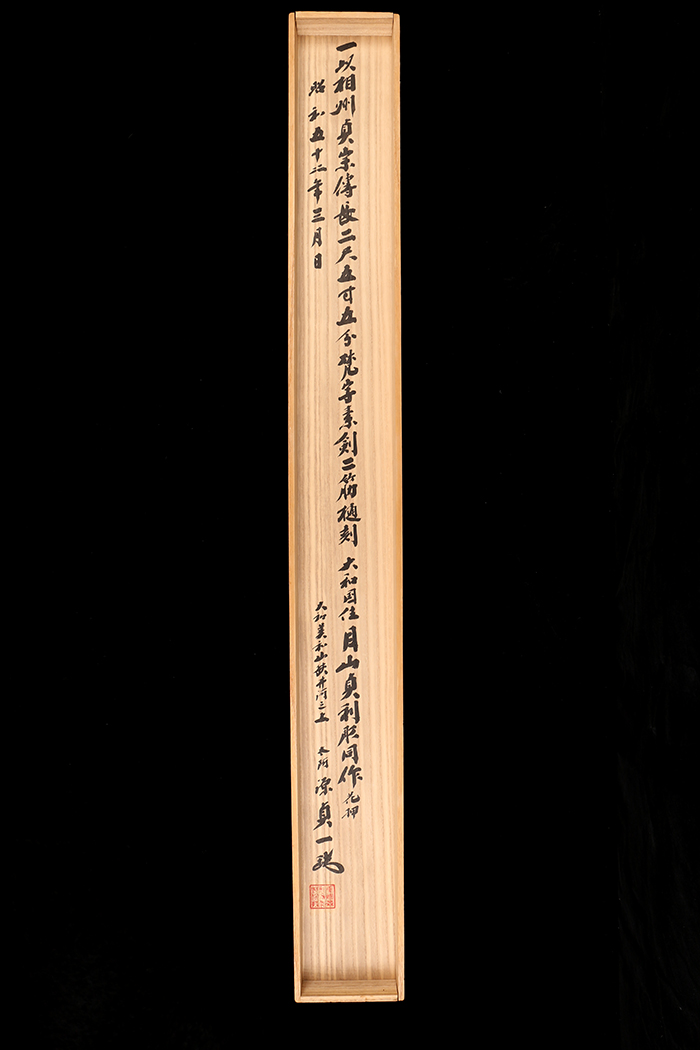 一以相州貞宗傳長二尺五寸五分梵字素剣二筋樋刻 大和国住月山貞利彫同作 花押
昭和五十二年三月日
大和美和山狭井河之上 於 源貞一